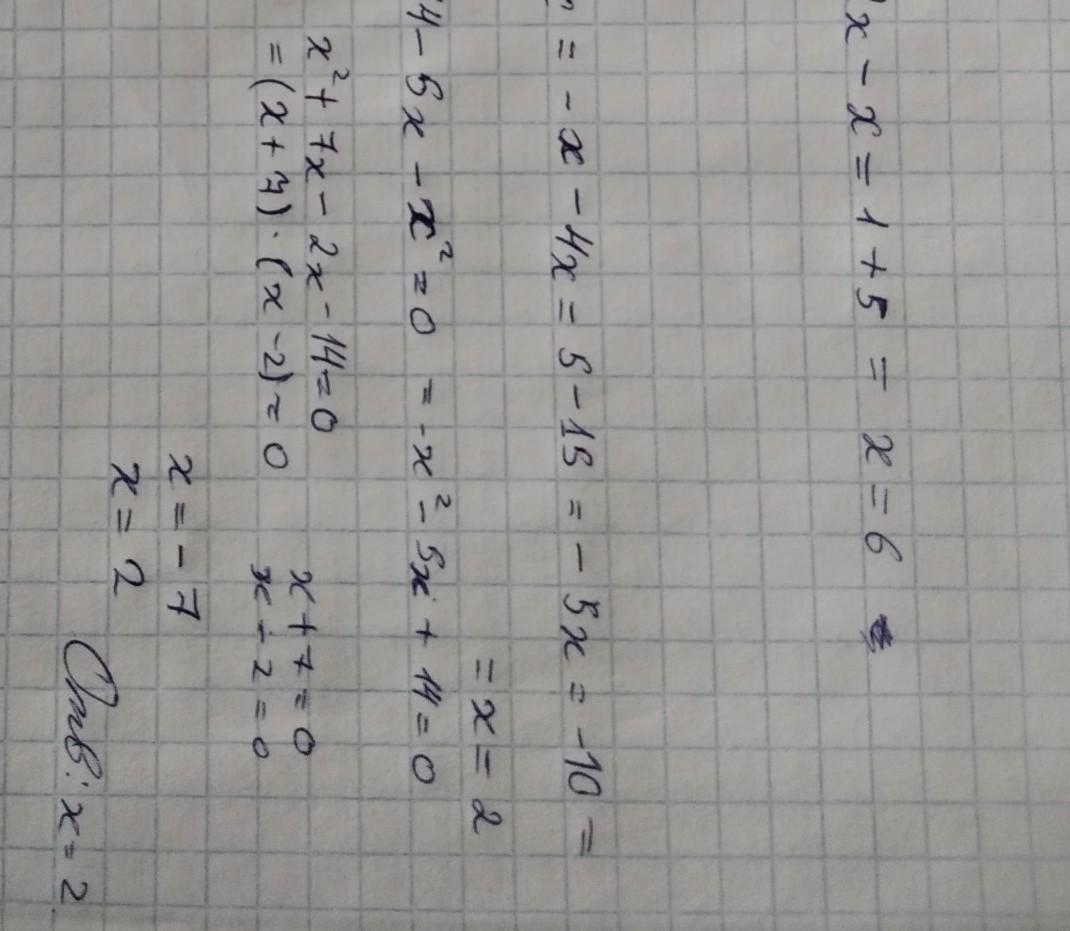 x - x = 1 + 5 = x = 6
= - x - 4x = 5 - 15 = - 5x = -10 =
= x = 2
4 - 5x - x² = 0 = -x² - 5x + 14 = 0
x² + 7x - 2x - 14 = 0 x + 7 = 0
= (x + 7) · (x - 2) = 0 x - 2 = 0
x = - 7
x = 2
Отв: x = 2